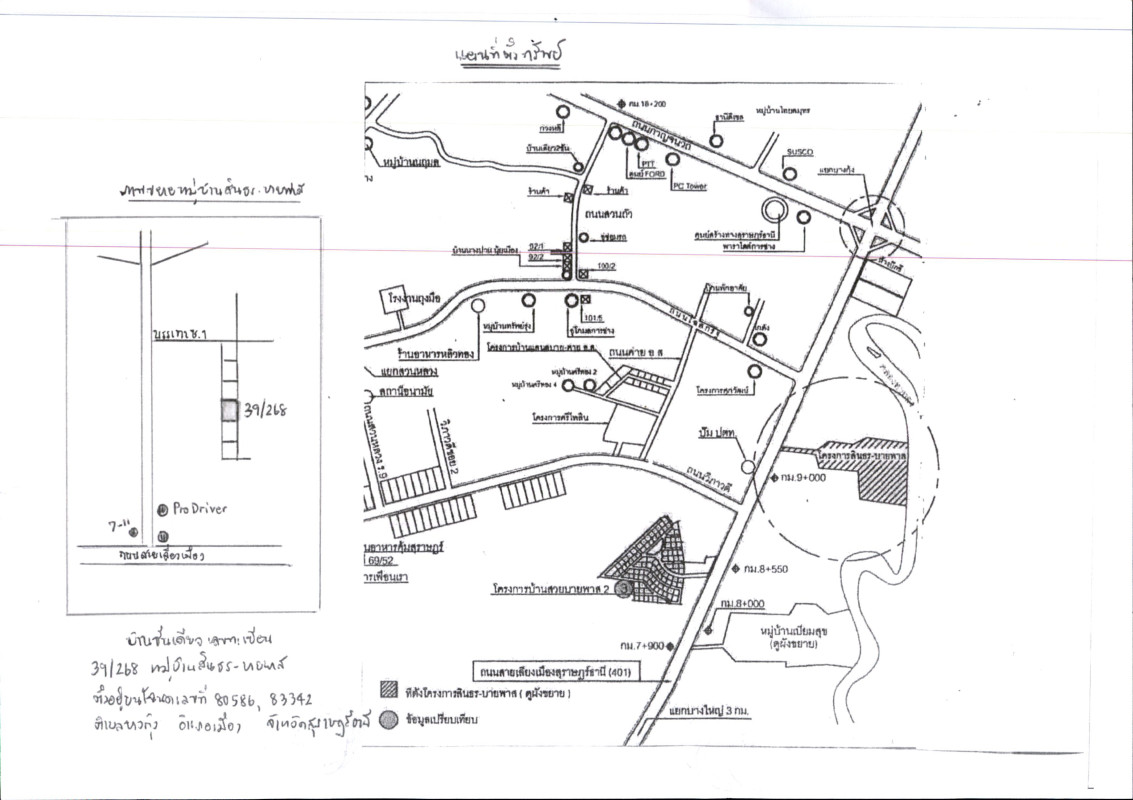 แผนที่ตั้งทรัพย์
กม.18+200
ถนนกาญจนวิถี
ธานีดีเซล
หมู่บ้านไทยสมุทร
บ้านเดี่ยว2ชั้น
หมู่บ้านนฤมล
PTT
ศูนย์ FORD
PC Tower
SUSCO
แยกบางกุ้ง
ร้านค้า
ร้านค้า
ถนนสวนถั่ว
อู่ซ่อมรถ
ศูนย์สร้างทางสุราษฎร์ธานี
พาราไดส์การช่าง
92/1
92/2
100/2
101/5
โรงงานถุงมือ
หมู่บ้านทรัพย์รุ่ง
ร้านอาหารหลิวทอง
แยกสวนหลวง
สถานีอนามัย
ถนนสวนหลวง ร.9
วิภาวดีซอย 2
ถนนค่าย อ ส
หมู่บ้านศรีทอง 2
หมู่บ้านศรีทอง 4
โครงการศรีไพลิน
ปั๊ม ปตท.
ถนนวิภาวดี
กม.9+000
โครงการสินธร-บายพาส
กม.8+550
กม.8+000
กม.7+900
นอาหารคุ้มสุราษฎร์
69/52
ารเพื่อนเรา
โครงการบ้านสวยบายพาส 2
3
หมู่บ้านเปี่ยมสุข
(ดูผังขยาย)
ถนนสายเลี่ยงเมืองสุราษฎร์ธานี (401)
ที่ตั้งโครงการสินธร-บายพาส ( ดูผังขยาย )
ข้อมูลเปรียบเทียบ
แยกบางใหญ่ 3 กม.
ภาพขยายหมู่บ้านสินธร-บายพาส
39/268
Pro Driver
7-11
ถนนสายเลี่ยงเมือง
บ้านชั้นเดียว เลขทะเบียน
39/268 หมู่บ้านสินธร-บายพาส
ตั้งอยู่บนโฉนดเลขที่ 80586, 83342
ตำบลบางกุ้ง อำเภอเมือง จังหวัดสุราษฎร์ธานี